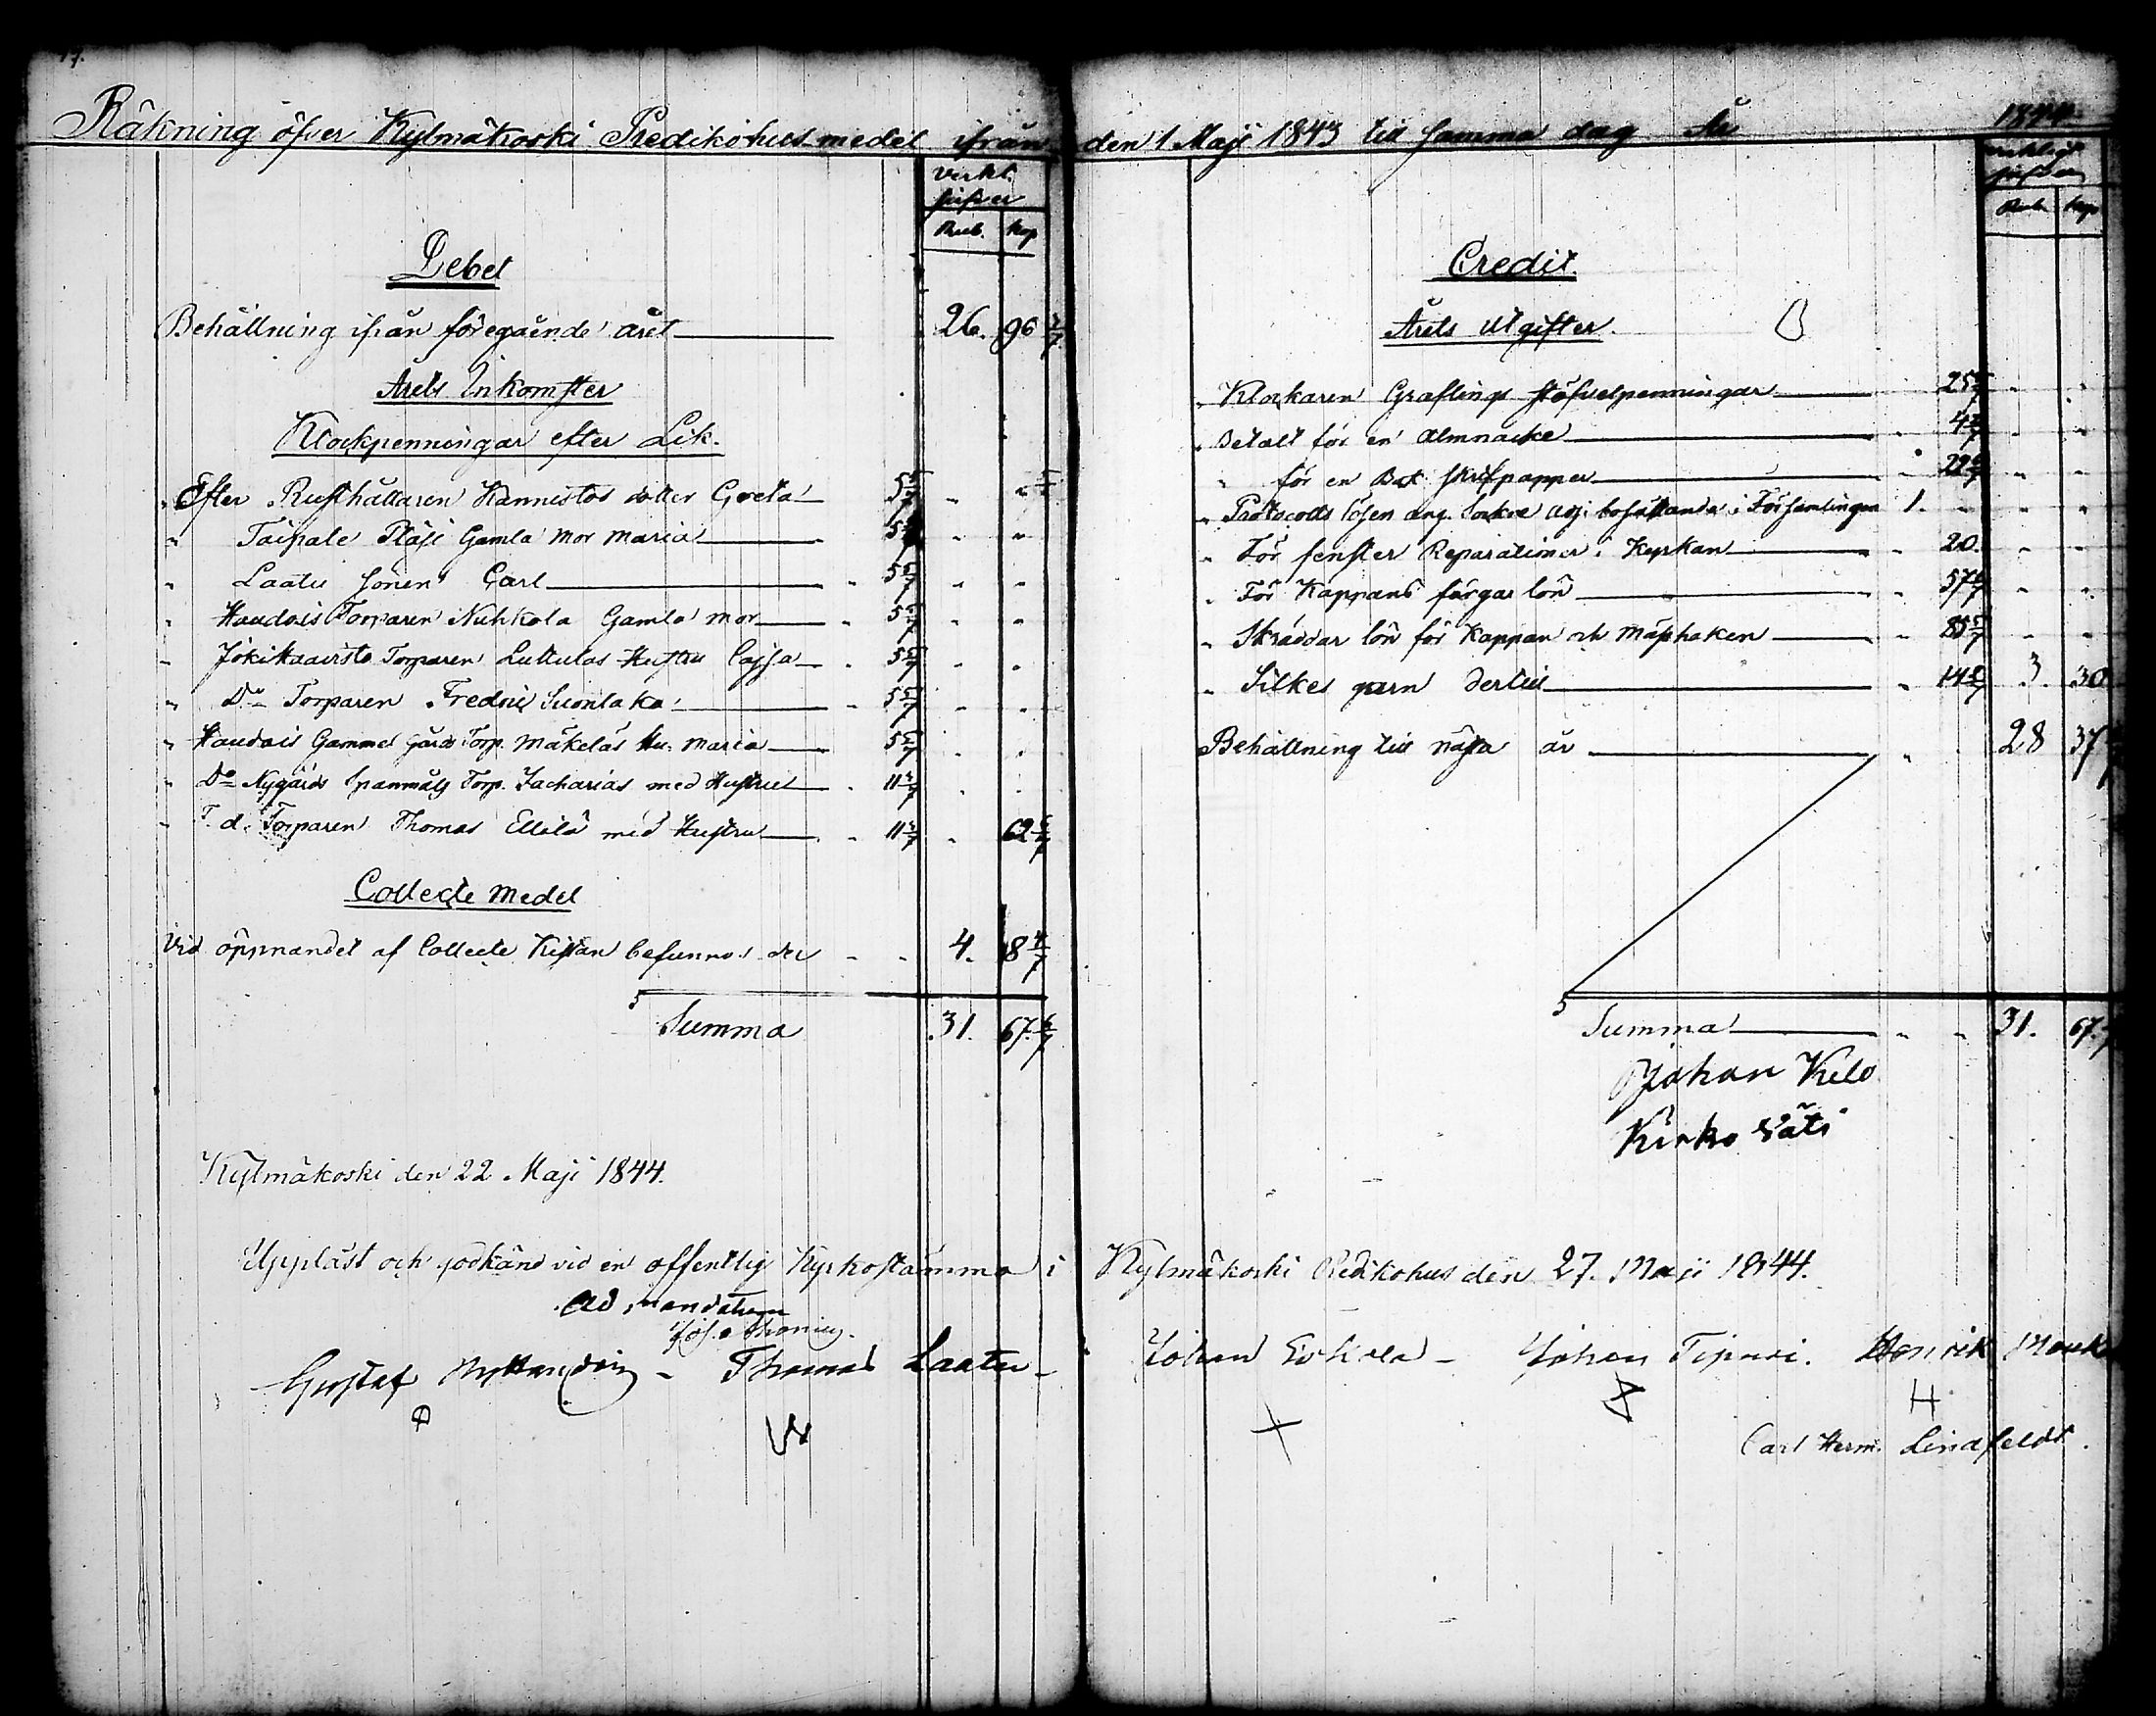 Räkning öfver Kylmäkoski Predikohus medel ifrån den 1 Maji 1843 till samma dag År 1844.
Verkl.
Silfver
Rub. Kop
Debet
Behållning ifrån föregående året 26. 96 2/7
Årets Inkomster
Klockpenningar efter Lik.
Efter Rusthållaren Hannistos dotter Greta 5 5/7
" Taipale Gamla Mor Maria 5 5/7
" Laatu sonen Carl 5 5/7
" Haudais Torparen Nuhkola Gamla mor 5 5/7
" Torparen Hustru Cajsa 5 5/7
" Do Torparen Fredric 5 5/7
" Haudais Gammel gårds Torp. Mäkeläs Hu. Maria 5 5/7
" Do Nygårds Torp. Zacharias med Hustrun 11 3/7
" T. d. Torparen Thomas Ellilä med Hustru 11 3/7 " 62 6/7
Collecte Medel
Vid öppnandet af Collecte Kistan befunnos der 4. 8 4/7
Summa 31. 67. 5/7
Kylmäkoski den 22 Maji 1844.
Rub. Kop
Credit.
Årets Utgifter.
" Klockaren Graflings stöfvelpenningar 25 5/7
" Betalt för en almnacke 4
" för en Bok skrifpapper 22 6/7
" Protocolls lösen ang. i Församlingen 1.
" För fenster Reparationer i Kyrkan 20.
" För Kappans färgar lön 57
" Skräddar lön för Kappan och Mässhaken 85 5/7
" Silkes garn dertill 14 3. 30
Behållning till nästa år 28 37
Summa 31. 67.
Johan Kilo
Kirko Väti
Uppläst och godkänd vid en offentlig Kyrkostämma i Kylmäkoski Predikohus den 27. Maji 1844.
Ad mandatum
Gustaf Thomas Laatu Johan Johan Henrik
Carl Herm. Lindfeldt.